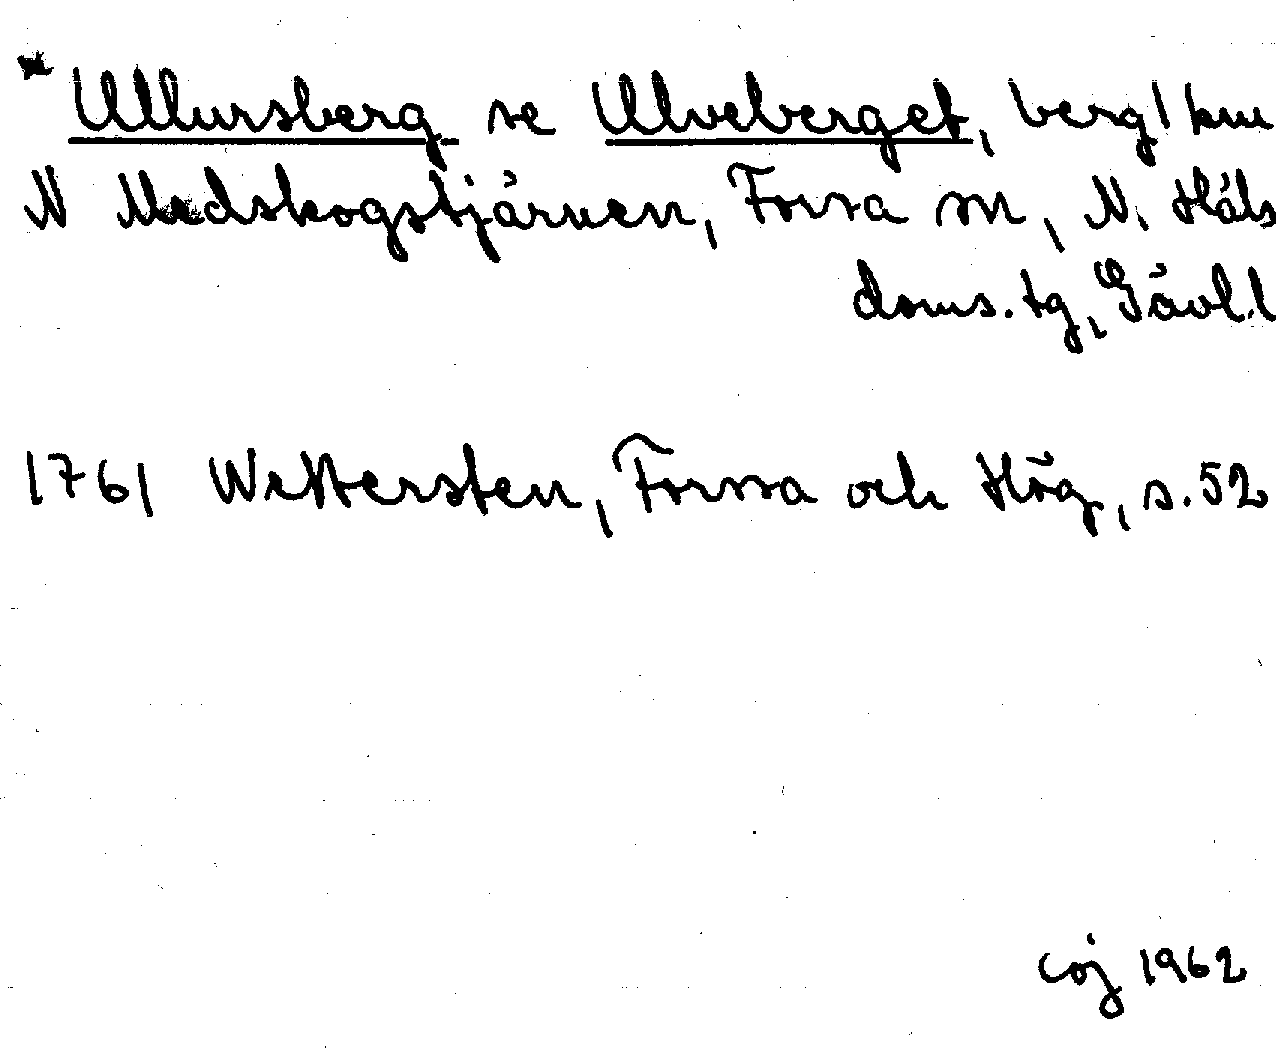 * Ullursberg se Ulveberget, berg 1 km
N Medskogstjärnen, Forsa sn, N. Häls
doms. tg, Gävl.l
1761 Wettersten, Forssa och Hög, s. 52
coj 1962